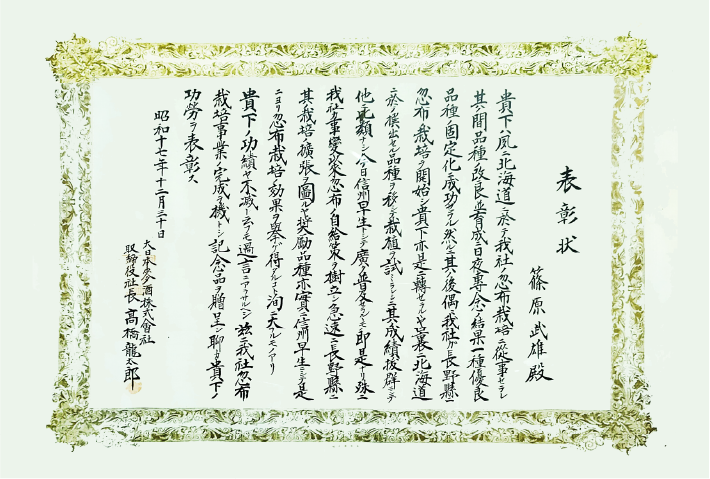 表彰状
篠原武雄殿
貴下ハ夙ニ北海道ニ於テ我社ノ忽布栽培ニ従事セラレ
其ノ間品種ノ改良育成ニ日夜専念ノ結果一種優良
品種ノ固定化ニ成功セラル然ルニ其ノ後偶々我社ガ長野縣ニ
忽布ノ栽培ヲ開始シ貴下亦是ニ轉ゼラルヽヤ嚢ニ北海道
ニ於ケル撰出セル品種ヲ移シテ栽植ヲ試ミラレシニ其ノ成績抜群ニシテ
他ニ毛類ナシ今日信州早生トシテ廣ク普及セラルヽモノ即是ナリ殊ニ
我社ガ事変以来忽布ノ自給策ヲ樹立シ急遽ニ長野縣ニ
其ノ栽培ノ擴張ヲ圖ルヤ奨励品種亦實ニ信州早生ニシテ是
ニヨリ忽布栽培ノ効果ヲ挙ゲ得タルコト洵ニ大ナルモノアリ
貴下ノ功績ヤ不滅ト云フモ過言ニアラザルベシ茲ニ我社忽布
栽培事業ノ完成ヲ機トシ記念品ヲ贈呈シ聊カ貴下ノ
功勞ヲ表彰ス
昭和十七年十二月三十日
大日本麥酒株式會社
取締役社長 高橋龍太郎